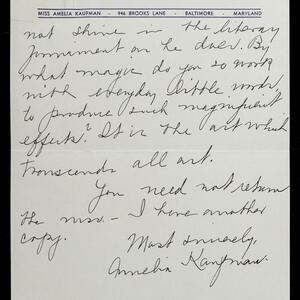 MISS AMELIA KAUFMAN · 946 BROOKS LANE · BALTIMORE MARYLAND
not shine in the literary
firmament as he does. By
what magic do you so work
with everyday little words
to produce such magnificent
effects? It is the art which
transcends all art.
You need not return
the mss. – I have another
copy.
Most sincerely,
Amelia Kaufman.